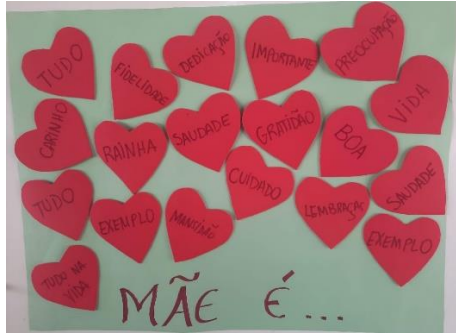 TUDO
FIDELIDADE
DEDICAÇÃO
IMPORTANTE
PREOCUPAÇÃO
CARINHO
RAINHA
SAUDADE
GRATIDÃO
BOA
VIDA
TUDO
EXEMPLO
CUIDADO
LEMBRAÇAS
SAUDADE
EXEMPLO
TUDO NA
VIDA
MÃE É...